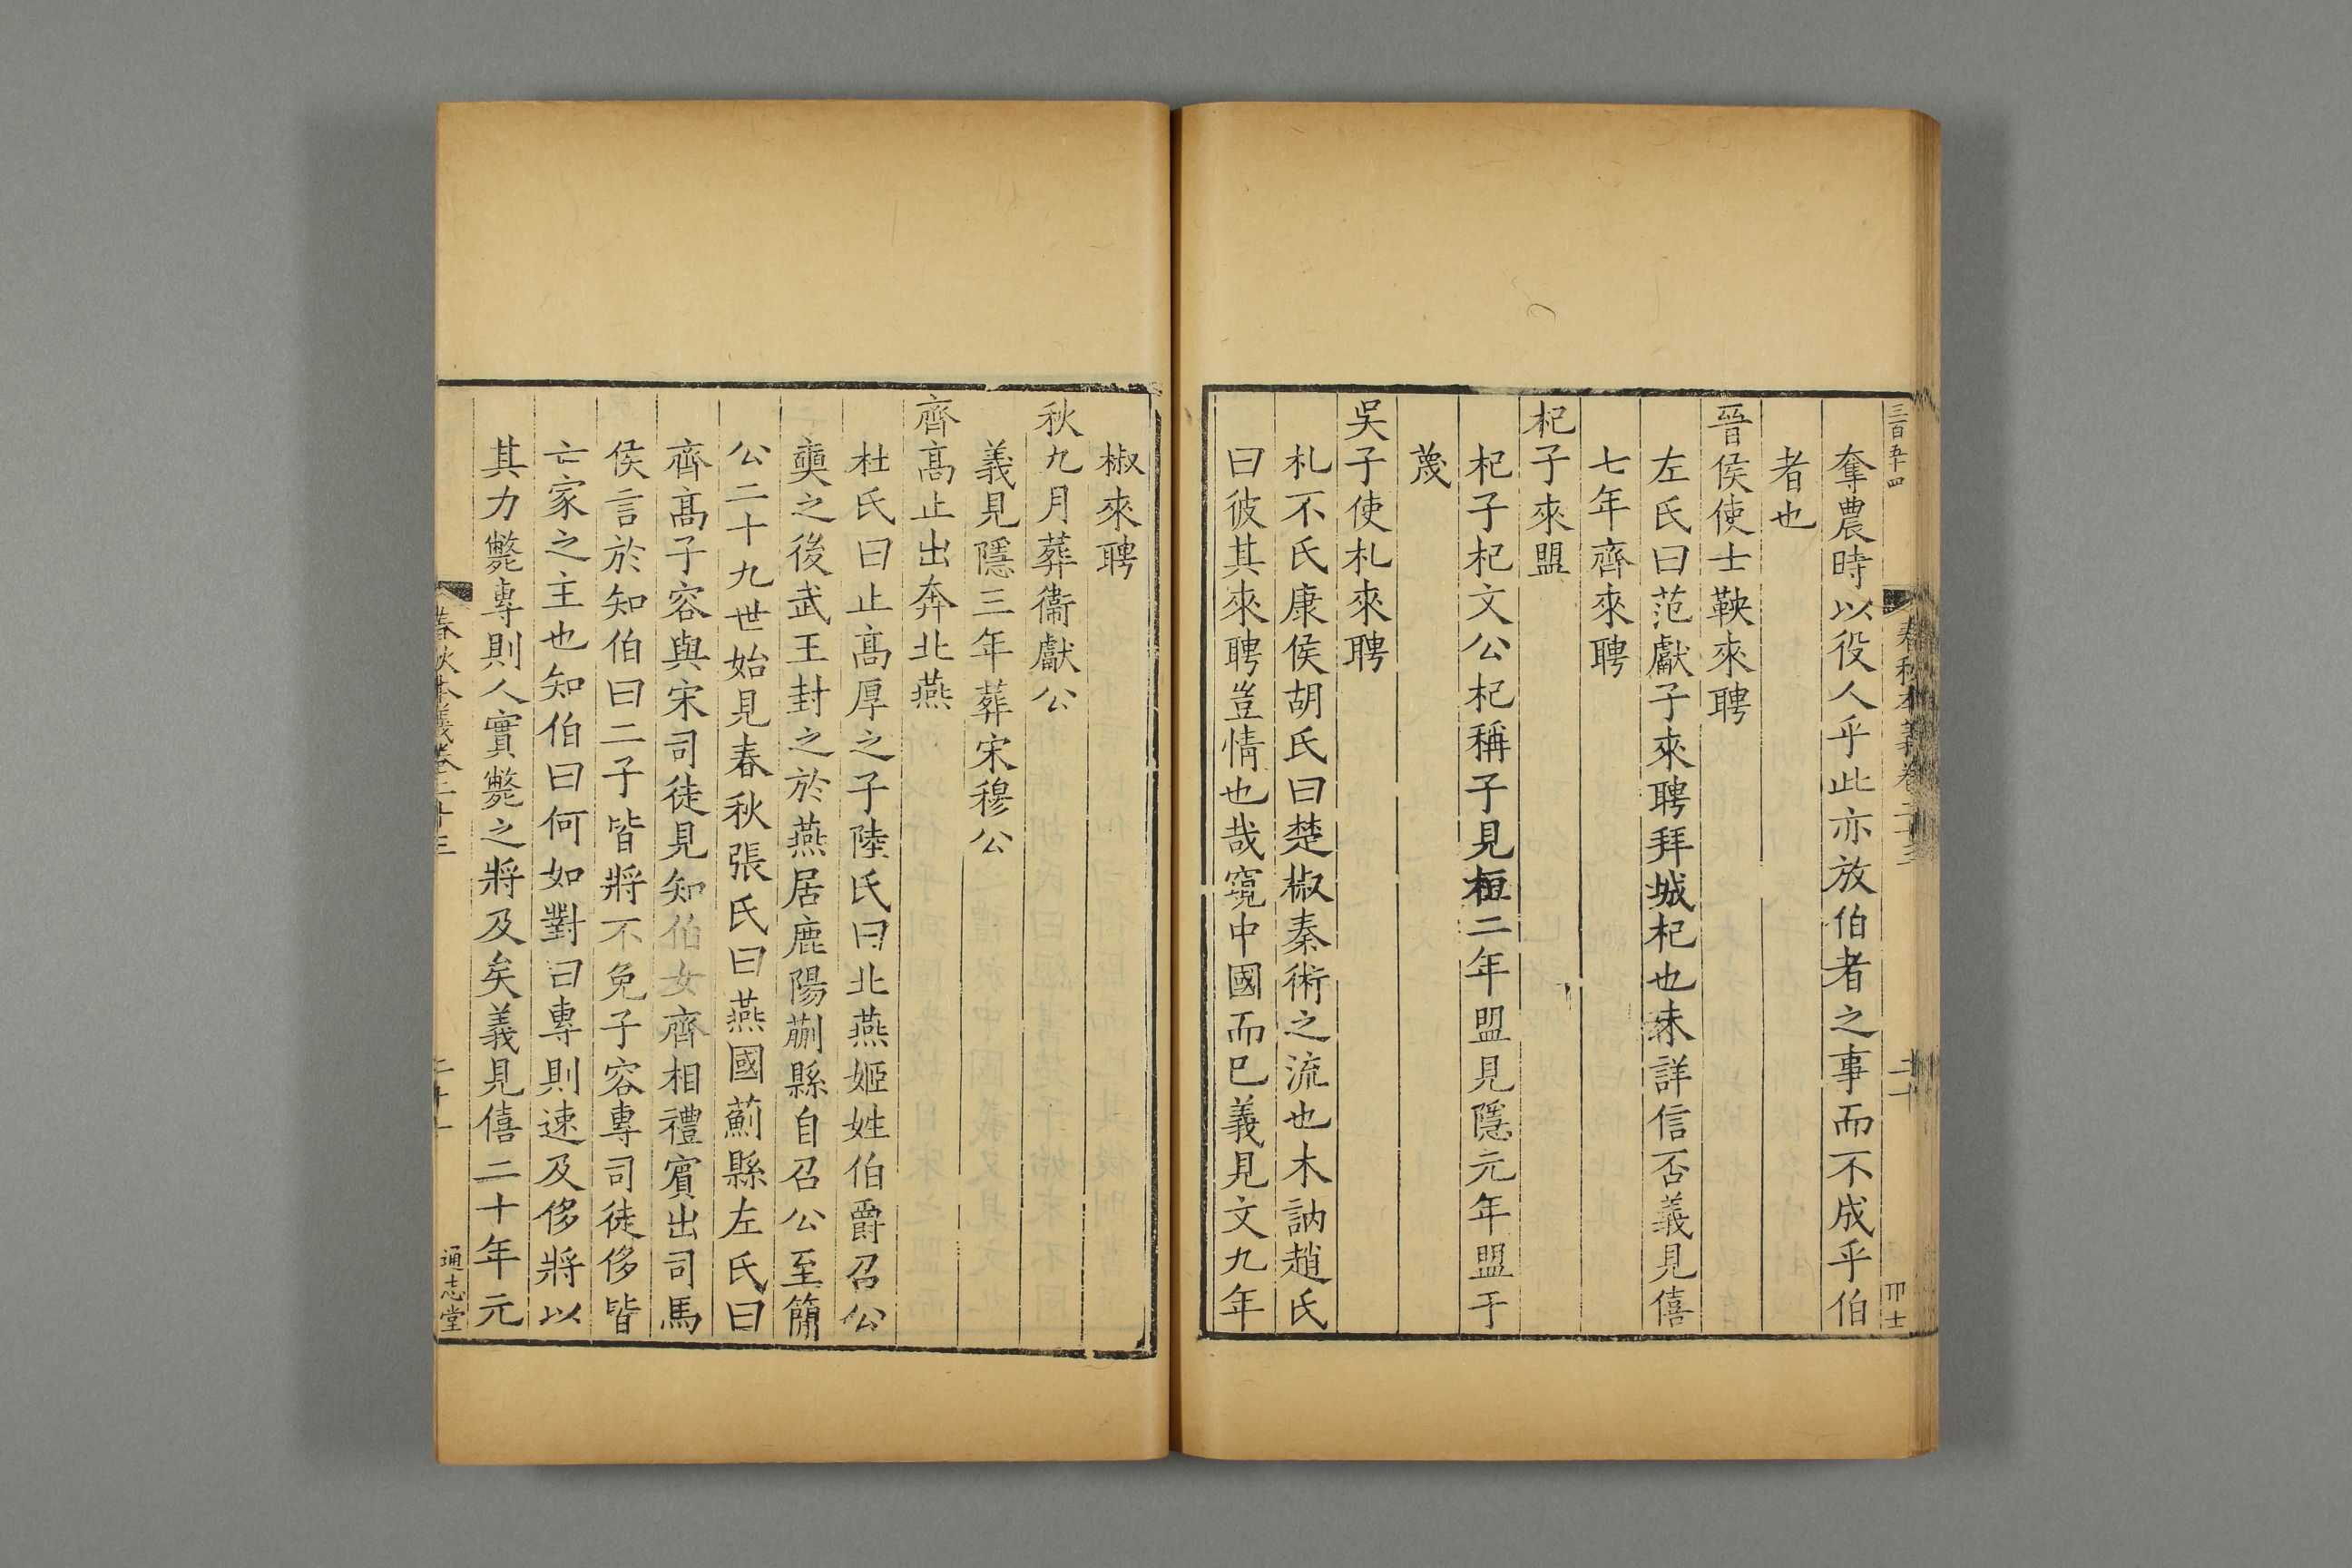 三百五十四
春秋本義卷二十三
二十
奪農時以役人乎此亦放伯者之事而不成乎伯
者也
晉侯使士鞅來聘
左氏曰范獻子來聘拜城杞也未詳信否義見僖
七年齊來聘
杞子來盟
杞子杞文公杞稱子見桓二年盟見隱元年盟于
蔑
吳子使札來聘
札不氏康侯胡氏曰楚椒秦術之流也木訥趙氏
曰彼其來聘豈情也哉窺中國而已義見文九年
椒來聘
秋九月葬衞獻公
義見隱三年葬宋穆公
齊髙止出奔北燕
杜氏曰止髙厚之子陸氏曰北燕姬姓伯爵召公
奭之後武王封之於燕居鹿陽蒯縣自召公至簡
公二十九世始見春秋張氏曰燕國薊縣左氏曰
齊髙子容與宋司徒見知伯女齊相禮賓出司馬
侯言於知伯曰二子皆將不免子容專司徒侈皆
亡家之主也知伯曰何如對曰專則速及侈將以
其力斃專則人實斃之將及矣義見僖二十年元
春秋本義卷二十三
通志堂